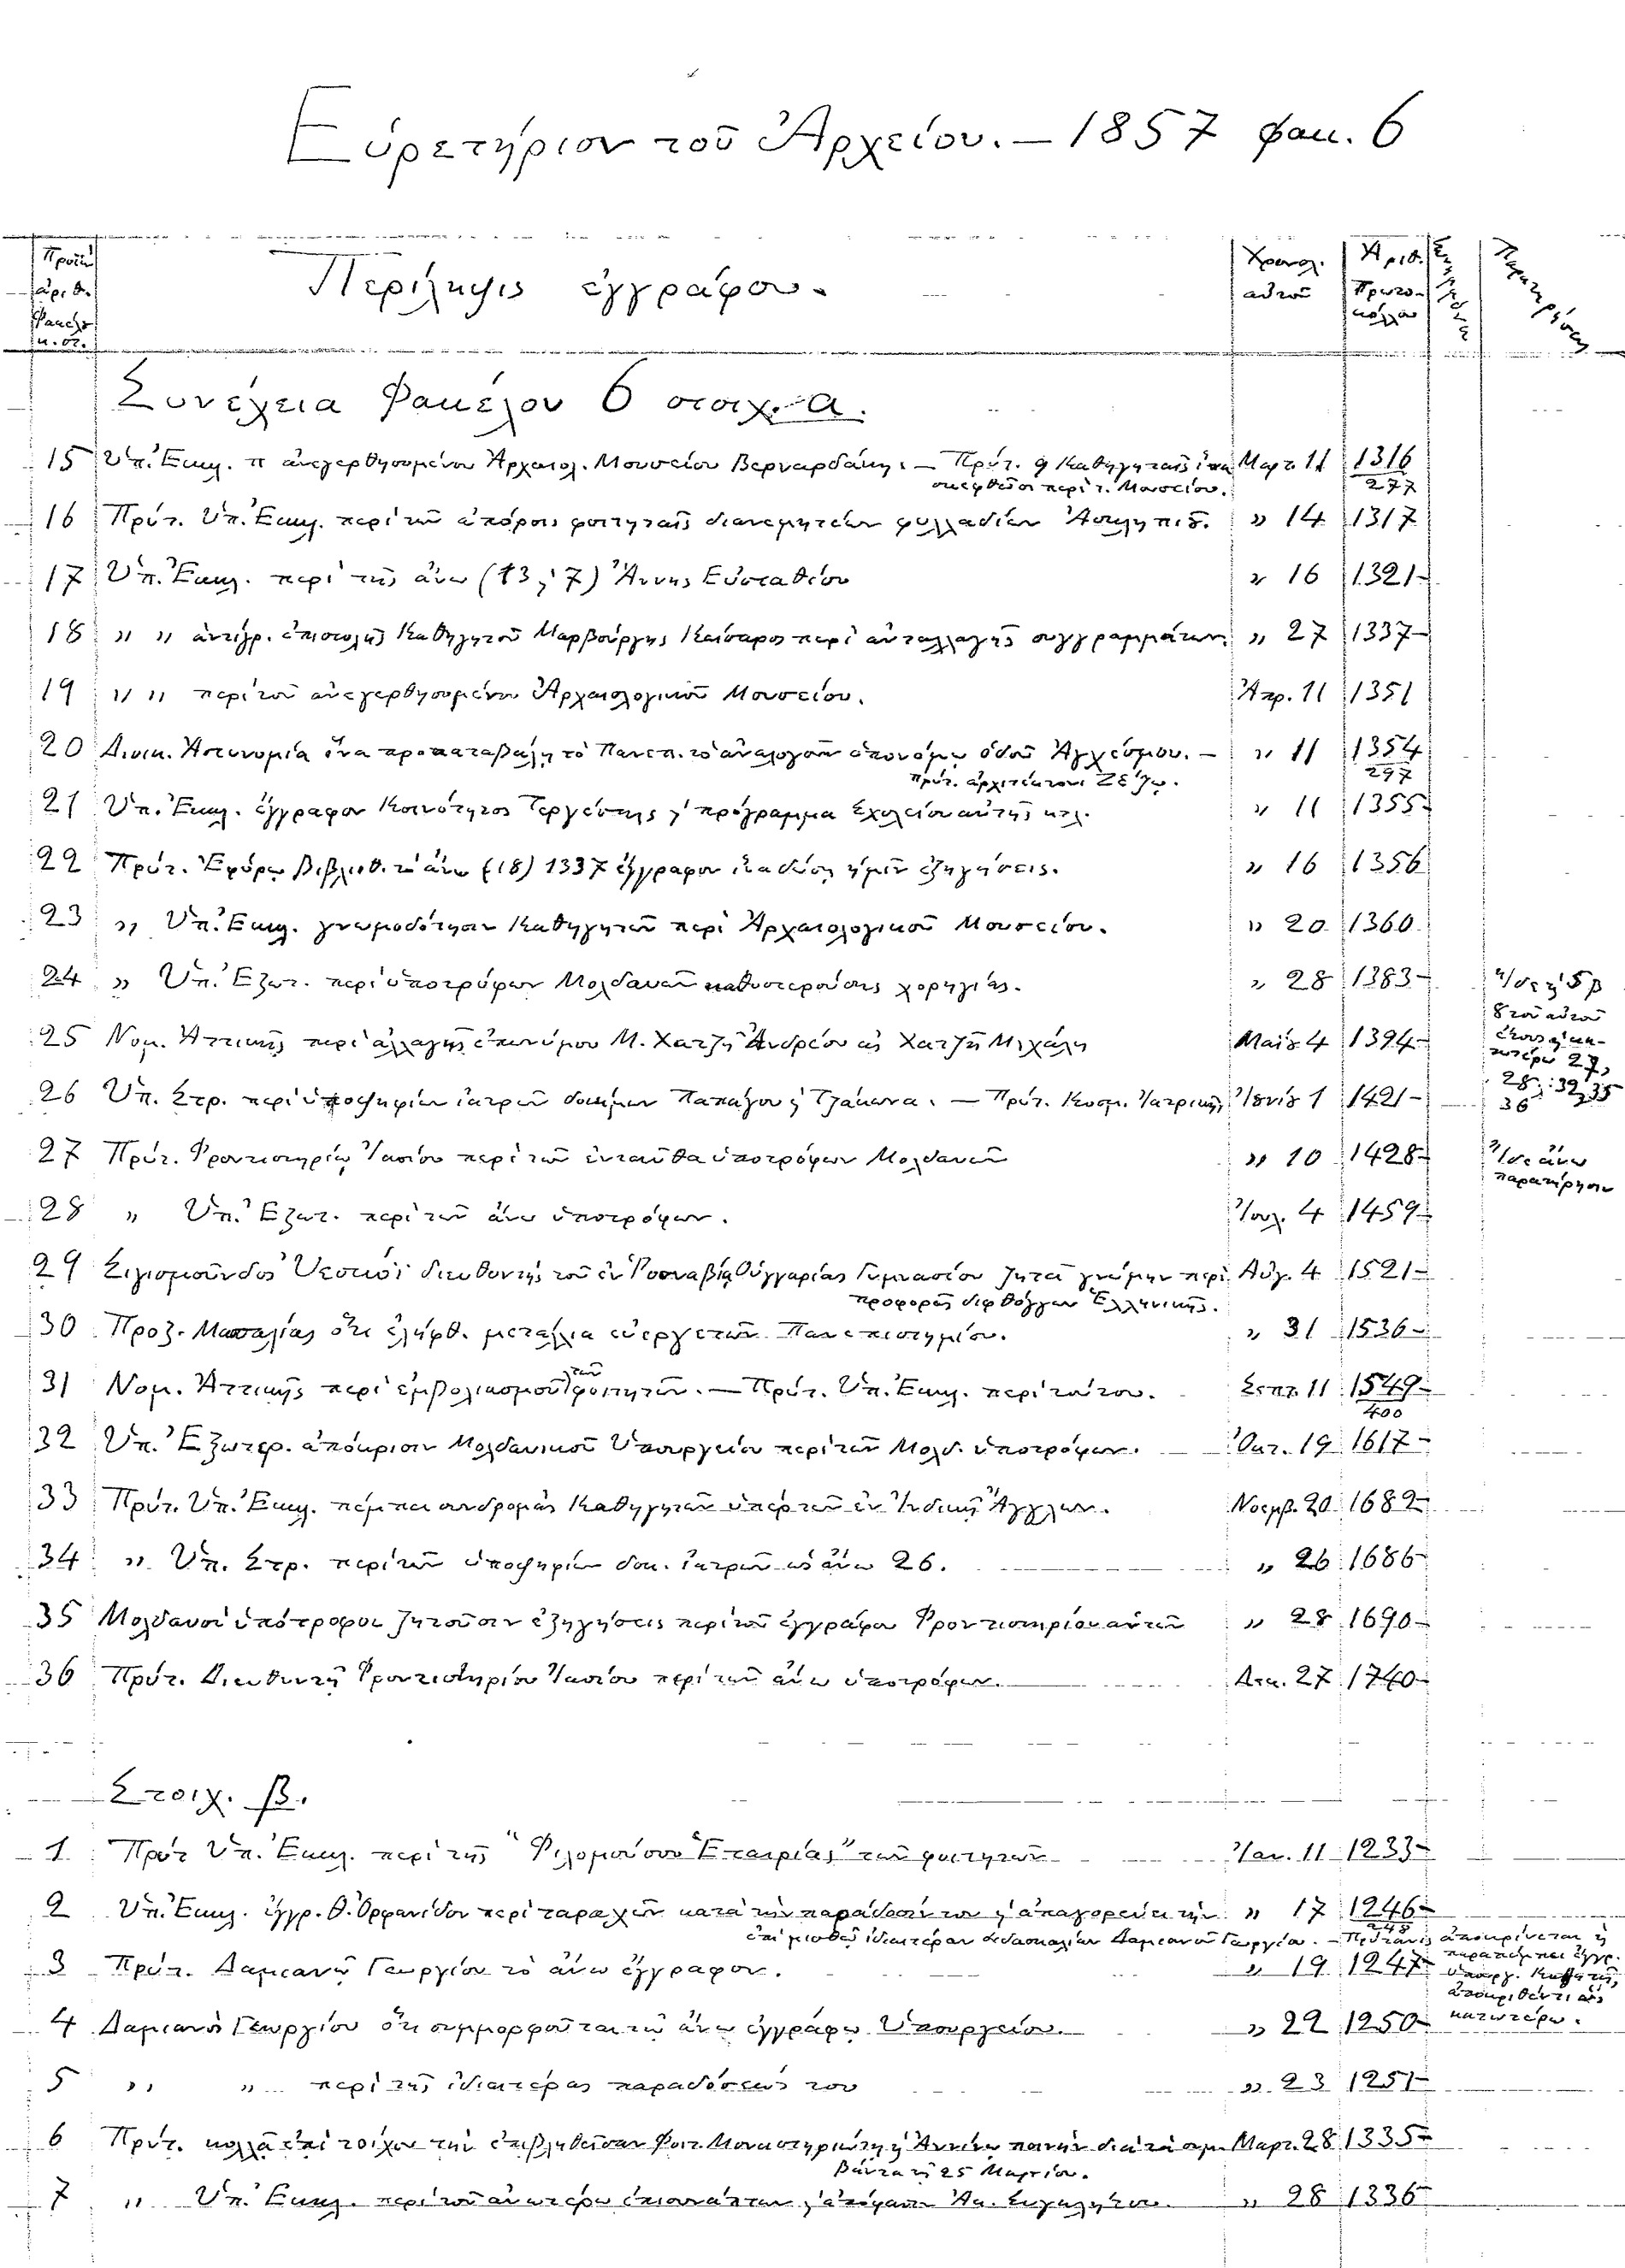 Εὑρετήριον τοῦ Ἀρχείου. — 1857 φακ. 6
Πρωτ. ἀριθ. Φακέλ. κ. στ.
Περίληψις ἐγγράφου.
Χρονολ. αὐτοῦ
Ἀριθ. Πρωτοκόλλου
Παρατηρήσεις
Συνέχεια Φακέλου 6 στοιχ. α.
15 Ὑπ. Ἐκκλ. π ἀνεγερθησομένου Ἀρχαιολ. Μουσείου Βερναρδάκη. — Πρύτ. 9 Καθηγηταῖς ἵνα Μαρτ. 11 1316
σκεφθῶσι περὶ τ. Μουσείου. 277
16 Πρύτ. Ὑπ. Ἐκκλ. περὶ τῶν ἀπόροις φοιτηταῖς διανεμητέων φυλλαδίων Ἀσκληπιδ. " 14 1317
17 Ὑπ. Ἐκκλ. περὶ τῆς ἄνω (13 ϗ 7) Ἄννης Εὐσταθίου " 16 1321
18 " " ἀντίγρ. ἐπιστολῆς Καθηγητοῦ Μαρβούργης Καίσαρος περὶ ἀνταλλαγῆς συγγραμμάτων. " 27 1337
19 " " περὶ τοῦ ἀνεγερθησομένου Ἀρχαιολογικοῦ Μουσείου. Ἀπρ. 11 1351
20 Διοικ. Ἀστυνομία ἵνα προκαταβάλῃ τὸ Πανεπ. τὸ ἀναλογοῦν ὑπονόμῳ ὁδοῦ Ἀγχέσμου. — " 11 1354
Πρύτ. ἀρχιτέκτονι Ζέζῳ. 297
21 Ὑπ. Ἐκκλ. ἔγγραφον Κοινότητος Τεργέστης ϗ πρόγραμμα Σχολείου αὐτῆς κτλ. " 11 1355
22 Πρύτ. Ἐφόρῳ Βιβλιοθ. τὸ ἄνω (18) 1337 ἔγγραφον ἵνα δώσῃ ἡμῖν ἐξηγήσεις. " 16 1356
23 " Ὑπ. Ἐκκλ. γνωμοδότησιν Καθηγητῶν περὶ Ἀρχαιολογικοῦ Μουσείου. " 20 1360
24 " Ὑπ. Ἐξωτ. περὶ ὑποτρόφων Μολδαυῶν καθυστερούσης χορηγίας. " 28 1383
Ἴδε ϗ 5 β
8 τοῦ αὐτοῦ
ἔτους ϗ κα-
τωτέρω 27,
28, 32, 35
36
25 Νομ. Ἀττικῆς περὶ ἀλλαγῆς ἐπωνύμου Μ. Χατζῆ Ἀνδρέου εἰς Χατζῆ Μιχάλη Μαΐου 4 1394
26 Ὑπ. Στρ. περὶ ὑποψηφίων ἰατρῶν δοκίμων Παπάζου ϗ Τζάκωνα. — Πρύτ. Κοσμ. Ἰατρικῆς Ἰουνίου 1 1421
27 Πρύτ. Φροντιστηρίῳ Ἰασίου περὶ τῶν ἐνταῦθα ὑποτρόφων Μολδαυῶν " 10 1428 Ἴδε ἄνω
παρατήρησιν
28 " Ὑπ. Ἐξωτ. περὶ τῶν ἄνω ὑποτρόφων. Ἰουλ. 4 1459
29 Σιγισμοῦνδος διευθυντὴς τοῦ ἐν Οὑγγαρίας Γυμνασίου ζητεῖ γνώμην περὶ Αὐγ. 4 1521
προφορᾶς διφθόγγων Ἑλληνικῆς.
30 Προξ. Μασσαλίας ὅτι ἐλήφθ. μετάλλια εὐεργετῶν Πανεπιστημίου. " 31 1536
31 Νομ. Ἀττικῆς περὶ ἐμβολιασμοῦ τῶν φοιτητῶν. — Πρύτ. Ὑπ. Ἐκκλ. περὶ τούτου. Σεπτ. 11 1549
400
32 Ὑπ. Ἐξωτερ. ἀπόκρισιν Μολδαυικοῦ Ὑπουργείου περὶ τῶν Μολδ. ὑποτρόφων. Ὀκτ. 19 1617
33 Πρύτ. Ὑπ. Ἐκκλ. πέμπει συνδρομὰς Καθηγητῶν ὑπὲρ τῶν ἐν Ἰνδικῇ Ἄγγλων. Νοεμβ. 20 1682
34 " Ὑπ. Στρ. περὶ τῶν ὑποψηφίων δοκ. ἰατρῶν ὡς ἄνω 26. " 26 1686
35 Μολδαυοὶ ὑπότροφοι ζητοῦσιν ἐξηγήσεις περὶ τοῦ ἐγγράφου Φροντιστηρίου αὐτῶν " 28 1690
36 Πρύτ. Διευθυντῇ Φροντιστηρίου Ἰασίου περὶ τῶν ἄνω ὑποτρόφων. Δεκ. 27 1740
Στοιχ. β.
1 Πρύτ Ὑπ. Ἐκκλ. περὶ τῆς "Φιλομούσου Ἑταιρίας" τῶν φοιτητῶν Ἰαν. 11 1233
2 Ὑπ. Ἐκκλ. ἔγγρ. Θ. Ὀρφανίδου περὶ ταραχῶν κατὰ τὴν παράδοσίν του ϗ ἀπαγορεύει τὴν " 17 1246
ἐπὶ μισθῷ ἰδιαιτέραν διδασκαλίαν Δαμιανοῦ Γεωργίου. — Πρύτανις ἀποκρίνεται ϗ
παραπέμπει ἔγγρ.
ὑπουργ. Καθητῇ,
ἀποκριθέντι ὡς
κατωτέρω.
3 Πρύτ. Δαμιανῷ Γεωργίου τὸ ἄνω ἔγγραφον. " 19 1247
4 Δαμιανὸς Γεωργίου ὅτι συμμορφοῦται τῷ ἄνω ἐγγράφῳ Ὑπουργείου. " 22 1250
5 " " περὶ τῆς ἰδιαιτέρας παραδόσεώς του " 23 1251
6 Πρύτ. κολλᾷ ἐπὶ τοίχου τὴν ἐπιβληθεῖσαν φοιτ. Μοναστηριώτῃ ϗ Ἀννίνῳ ποινὴν διὰ τὰ συμ Μαρτ. 28 1335
βάντα τῇ 25 Μαρτίου.
7 " Ὑπ. Ἐκκλ. περὶ τοῦ ἀνωτέρω ϗ ἀπόφασιν Ἀκ. Συγκλήτου. " 28 1336